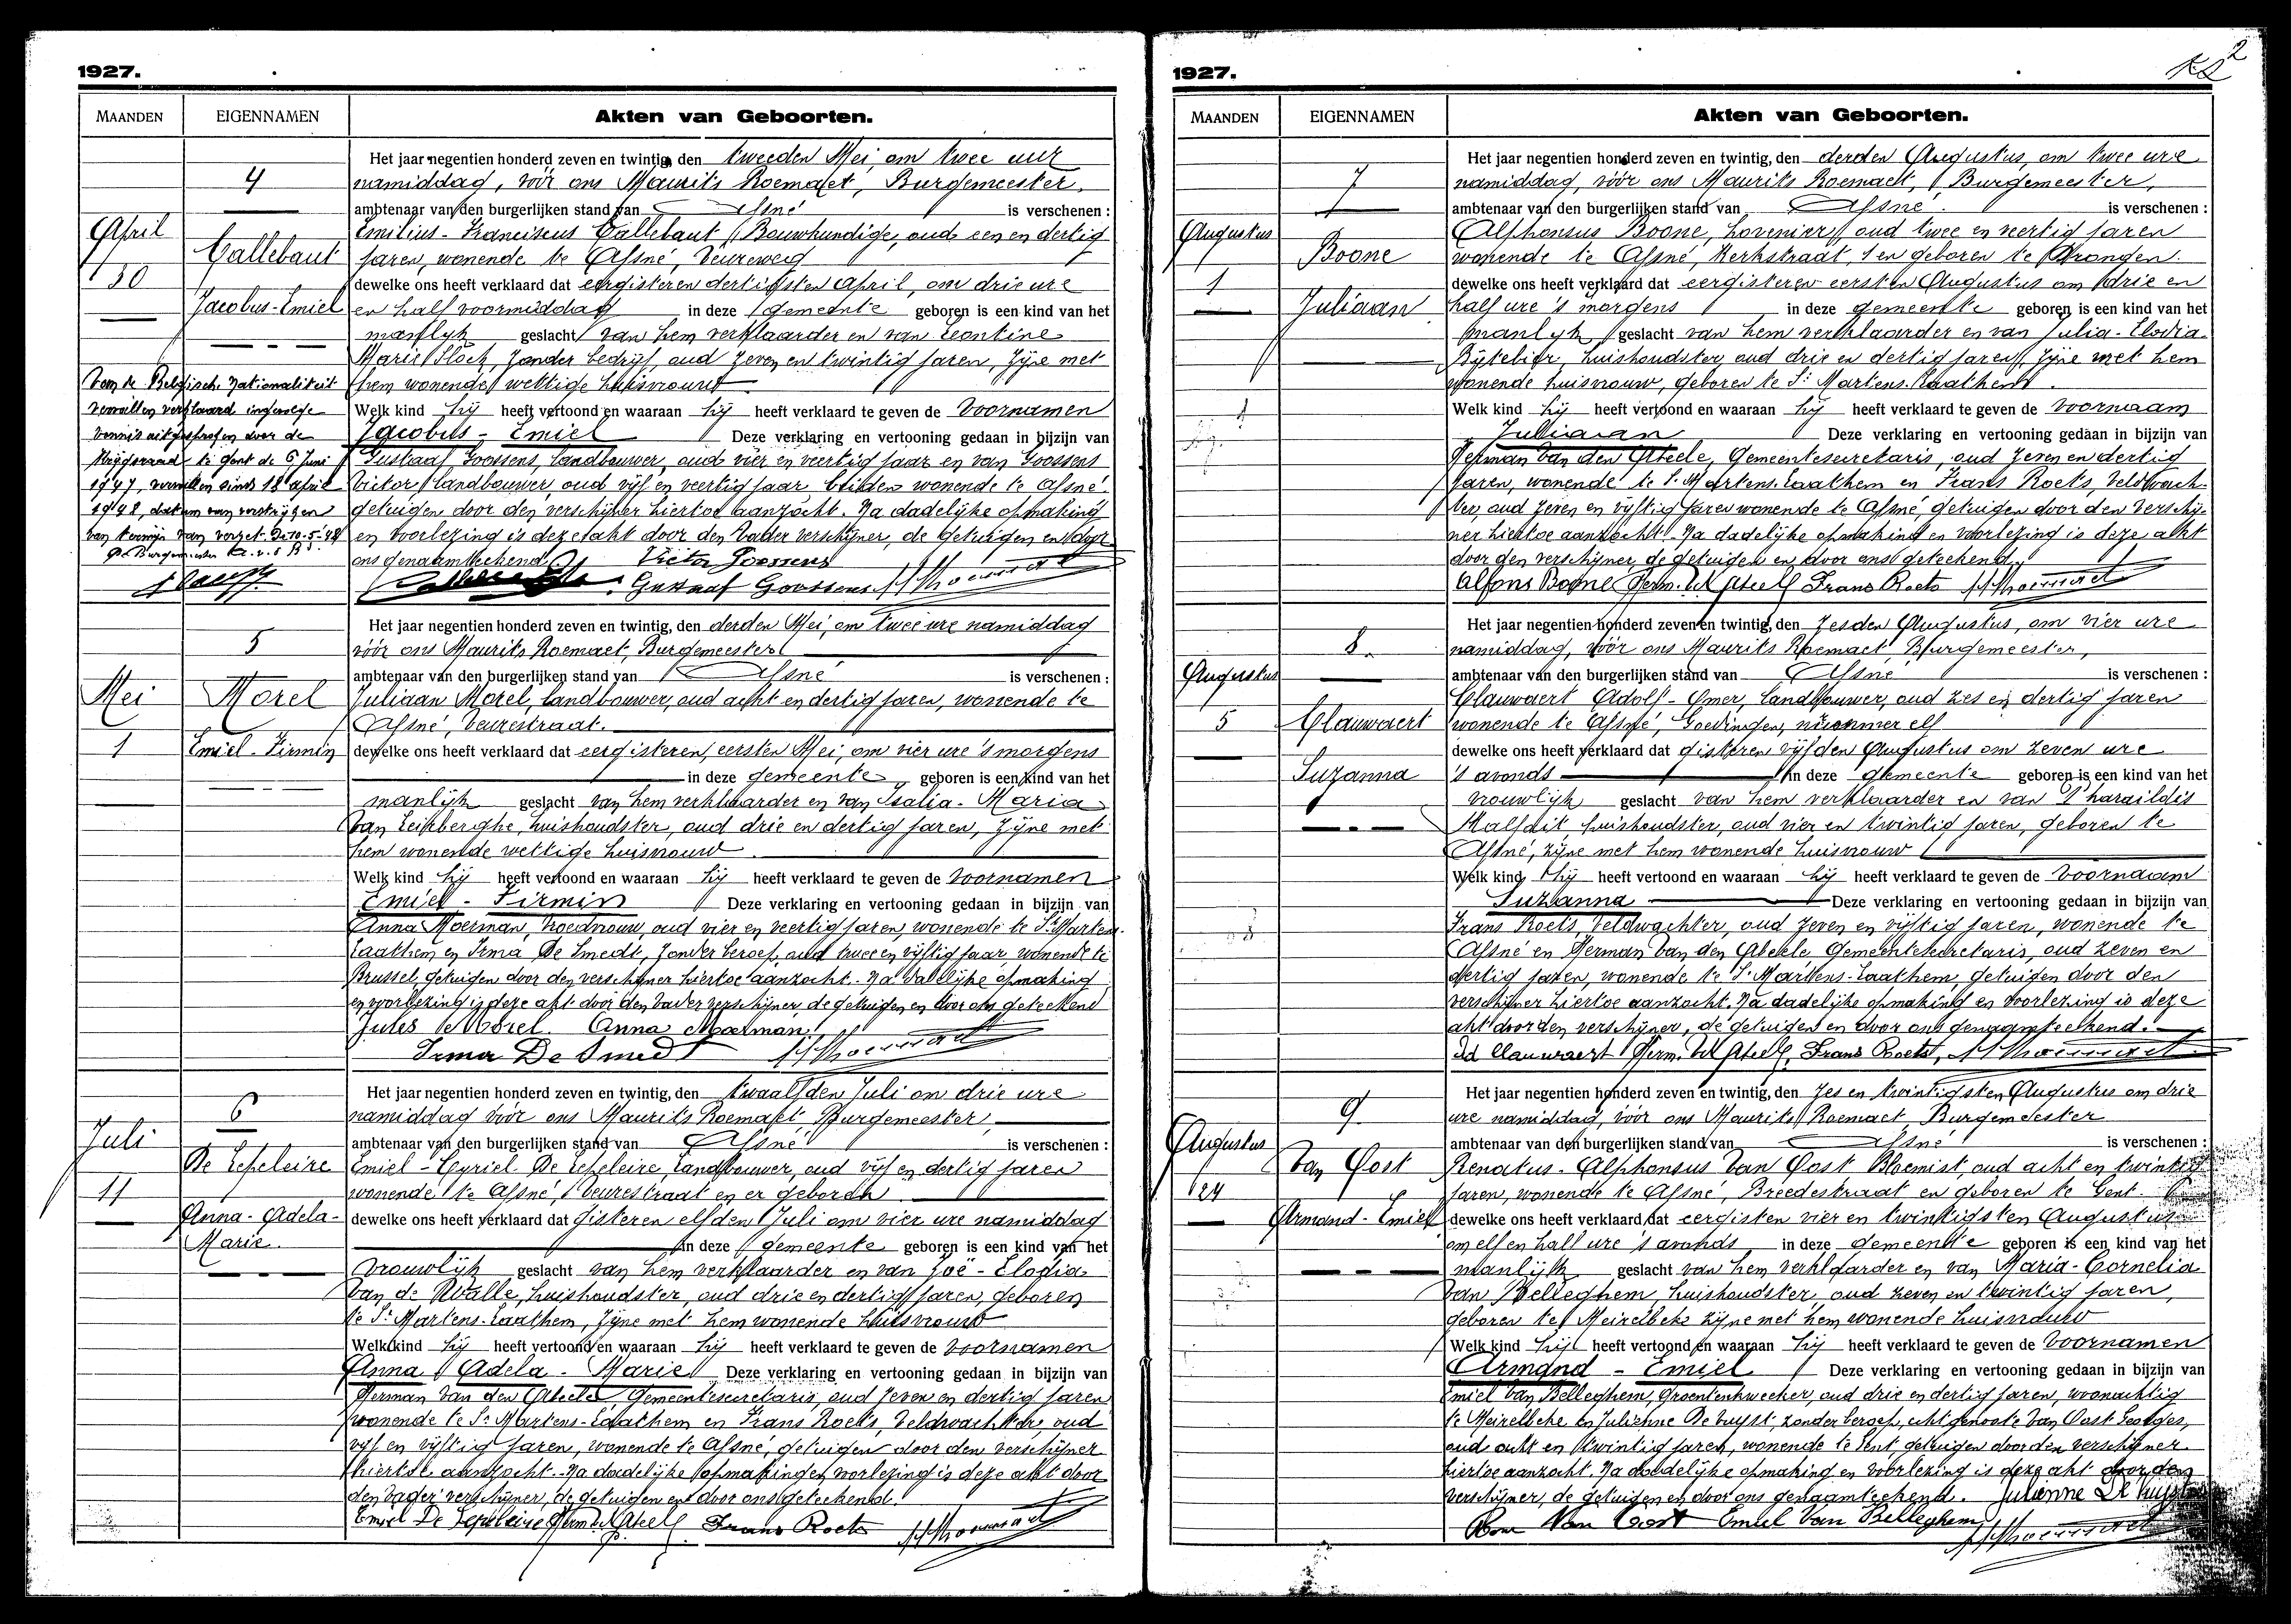 1927.
MAANDEN
EIGENNAMEN
Akten van Geboorten.
4
April
Callebaut
30
Jacobus-Emiel
Van de Belgische Nationaliteit
vervallen verklaard ingevolge
vonnis uitgesproken door de
Krijgsraad te Gent de 6 Juni
1947, vervallen sinds 18 april
1948, datum van verstrijken
van termijn van verzet. De 10.5.48
Het jaar negentien honderd zeven en twintig, den tweeden Mei, om twee uur
namiddag, vóór ons Maurits Roemaet, Burgemeester,
ambtenaar van den burgerlijken stand van Afsné is verschenen :
Emilius-Franciscus Callebaut, Bouwkundige, oud een en dertig
jaren, wonende te Afsné, Veureweg
dewelke ons heeft verklaard dat eergisteren dertigsten April, om drie ure
en half voormiddag in deze gemeente geboren is een kind van het
manlijk geslacht van hem verklaarder en van Leontine
Marie Slock, zonder bedrijf, oud zeven en twintig jaren, zijne met
hem wonende wettige huisvrouw
Welk kind hij heeft vertoond en waaraan hij heeft verklaard te geven de voornamen
Jacobus - Emiel Deze verklaring en vertooning gedaan in bijzijn van
Gustaaf Goossens, landbouwer, oud vier en veertig jaar en van Goossens
Victor, landbouwer, oud vijf en veertig jaar beiden wonende te Afsné
getuigen door den verschijner hiertoe aanzocht. Na dadelijke opmaking
en voorlezing is deze akt door den vader verschijner, de getuigen en door
ons genaamteekend. Victor Goossens
Gustaaf Goossens M Roemaet
5
Mei
Morel
1
Emiel-Firmin
Het jaar negentien honderd zeven en twintig, den derden Mei, om twee ure namiddag
vóór ons Maurits Roemaet, Burgemeester
ambtenaar van den burgerlijken stand van Afsné is verschenen :
Juliaan Morel, landbouwer, oud acht en dertig jaren, wonende te
Afsné, Veurestraat.
dewelke ons heeft verklaard dat eergisteren, eersten Mei, om vier ure 's morgens
in deze gemeente geboren is een kind van het
manlijk geslacht van hem verklaarder en van Isalia-Maria
Van Leirberghe, huishoudster, oud drie en dertig jaren, zijne met
hem wonende wettige huisvrouw
Welk kind hij heeft vertoond en waaraan hij heeft verklaard te geven de voornamen
Emiel - Firmin Deze verklaring en vertooning gedaan in bijzijn van
Anna Moerman, vroedvrouw, oud vier en veertig jaren, wonende te St Martens-
Laathem en Irma De Smedt, zonder beroep, oud twee en vijftig jaar, wonende te
Brussel, getuigen door den verschijner hiertoe aanzocht. Na dadelijke opmaking
en voorlezing is deze akt door den vader verschijner, de getuigen en door ons geteekend
Jules Morel. Anna Moerman
Irma De Smedt M Roemaet
6
Juli
De Lepeleire
11
Anna-Adela-
Marie.
Het jaar negentien honderd zeven en twintig, den twaalfden Juli om drie ure
namiddag vóór ons Maurits Roemaet, Burgemeester,
ambtenaar van den burgerlijken stand van Afsné is verschenen :
Emiel-Cyriel De Lepeleire, Landbouwer, oud vijf en dertig jaren
wonende te Afsné, Veurestraat en er geboren
dewelke ons heeft verklaard dat gisteren elfden Juli om vier ure namiddag
in deze gemeente geboren is een kind van het
vrouwlijk geslacht van hem verklaarder en van Zoë-Elodia
Van de Walle, huishoudster, oud drie en dertig jaren, geboren
te St Martens-Laathem, zijne met hem wonende huisvrouw
Welk kind hij heeft vertoond en waaraan hij heeft verklaard te geven de voornamen
Anna Adela - Marie Deze verklaring en vertooning gedaan in bijzijn van
Herman Van den Abeele, Gemeentesecretaris, oud zeven en dertig jaren
wonende te St Martens-Laathem en Frans Roets, Veldwachter, oud
vijf en vijftig jaren, wonende te Afsné, getuigen door den verschijner
hiertoe aanzocht. Na dadelijke opmaking en voorlezing is deze akt door
den vader verschijner, de getuigen en door ons geteekend.
Emiel De Lepeleire Herm. Vd Abeele Frans Roets M Roemaet
2
1927.
MAANDEN
EIGENNAMEN
Akten van Geboorten.
7
Augustus
Boone
1
Juliaan
Het jaar negentien honderd zeven en twintig, den derden Augustus, om twee ure
namiddag, vóór ons Maurits Roemaet, Burgemeester,
ambtenaar van den burgerlijken stand van Afsné is verschenen :
Alphonsus Boone, hovenier, oud twee en veertig jaren
wonende te Afsné, Kerkstraat, 1 en geboren te Drongen.
dewelke ons heeft verklaard dat eergisteren eersten Augustus om drie en
half ure 's morgens in deze gemeente geboren is een kind van het
manlijk geslacht van hem verklaarder en van Julia-Elodia
Bijtebier, huishoudster, oud drie en dertig jaren, zijne met hem
wonende huisvrouw, geboren te St Martens-Laathem.
Welk kind hij heeft vertoond en waaraan hij heeft verklaard te geven de voornaam
Juliaan Deze verklaring en vertooning gedaan in bijzijn van
Herman Van den Abeele, Gemeentesecretaris, oud zeven en dertig
jaren, wonende te St Martens-Laathem en Frans Roets, Veldwach-
ter, oud zeven en vijftig jaren wonende te Afsné, getuigen door den verschij-
ner hiertoe aanzocht. Na dadelijke opmaking en voorlezing is deze akt
door den verschijner, de getuigen en door ons geteekend.
Alfons Boone Herm. Vd Abeele Frans Roets M Roemaet
8.
Augustus
5
Clauwaert
Suzanna
Het jaar negentien honderd zeven en twintig, den zesden Augustus, om vier ure
namiddag, vóór ons Maurits Roemaet, Burgemeester,
ambtenaar van den burgerlijken stand van Afsné is verschenen :
Clauwaert Adolf-Omer, landbouwer, oud zes en dertig jaren
wonende te Afsné, Goedingen, nummer elf
dewelke ons heeft verklaard dat gisteren vijfden Augustus om zeven ure
's avonds in deze gemeente geboren is een kind van het
vrouwlijk geslacht van hem verklaarder en van Pharaildis
Malfait, huishoudster, oud vier en twintig jaren, geboren te
Afsné, zijne met hem wonende huisvrouw
Welk kind hij heeft vertoond en waaraan hij heeft verklaard te geven de voornaam
Suzanna Deze verklaring en vertooning gedaan in bijzijn van
Frans Roets, Veldwachter, oud zeven en vijftig jaren, wonende te
Afsné en Herman Van den Abeele, Gemeentesecretaris, oud zeven en
dertig jaren, wonende te St Martens-Laathem, getuigen door den
verschijner hiertoe aanzocht. Na dadelijke opmaking en voorlezing is deze
akt door den verschijner, de getuigen en door ons genaamteekend.
Ad Clauwaert Herm. Vd Abeele, Frans Roets, M Roemaet
9
Augustus
Van Oost
24
Armond-Emiel
Het jaar negentien honderd zeven en twintig, den zes en twintigsten Augustus om drie
ure namiddag, vóór ons Maurits Roemaet Burgemeester
ambtenaar van den burgerlijken stand van Afsné is verschenen :
Renatus-Alphonsus Van Oost Bloemist, oud acht en twintig
jaren, wonende te Afsné, Breedestraat en geboren te Gent.
dewelke ons heeft verklaard dat eergisten vier en twintigsten Augustus
om elf en half ure 's avonds in deze gemeente geboren is een kind van het
manlijk geslacht van hem verklaarder en van Maria-Cornelia
Van Belleghem, huishoudster, oud zeven en twintig jaren,
geboren te Meirelbeke zijne met hem wonende huisvrouw
Welk kind hij heeft vertoond en waaraan hij heeft verklaard te geven de voornamen
Armond - Emiel Deze verklaring en vertooning gedaan in bijzijn van
Emiel Van Belleghem, Groentenkweeker, oud drie en dertig jaren, woonachtig
te Meirelbeke en Julienne De Vuyst, zonder beroep, echtgenoote Van Oost Georges,
oud acht en twintig jaren, wonende te Gent, getuigen door den verschijner
hiertoe aanzocht. Na dadelijke opmaking en voorlezing is deze akt door den
verschijner, de getuigen en door ons genaamteekend. Julienne De Vuyst
Van Oost Emiel Van Belleghem M Roemaet